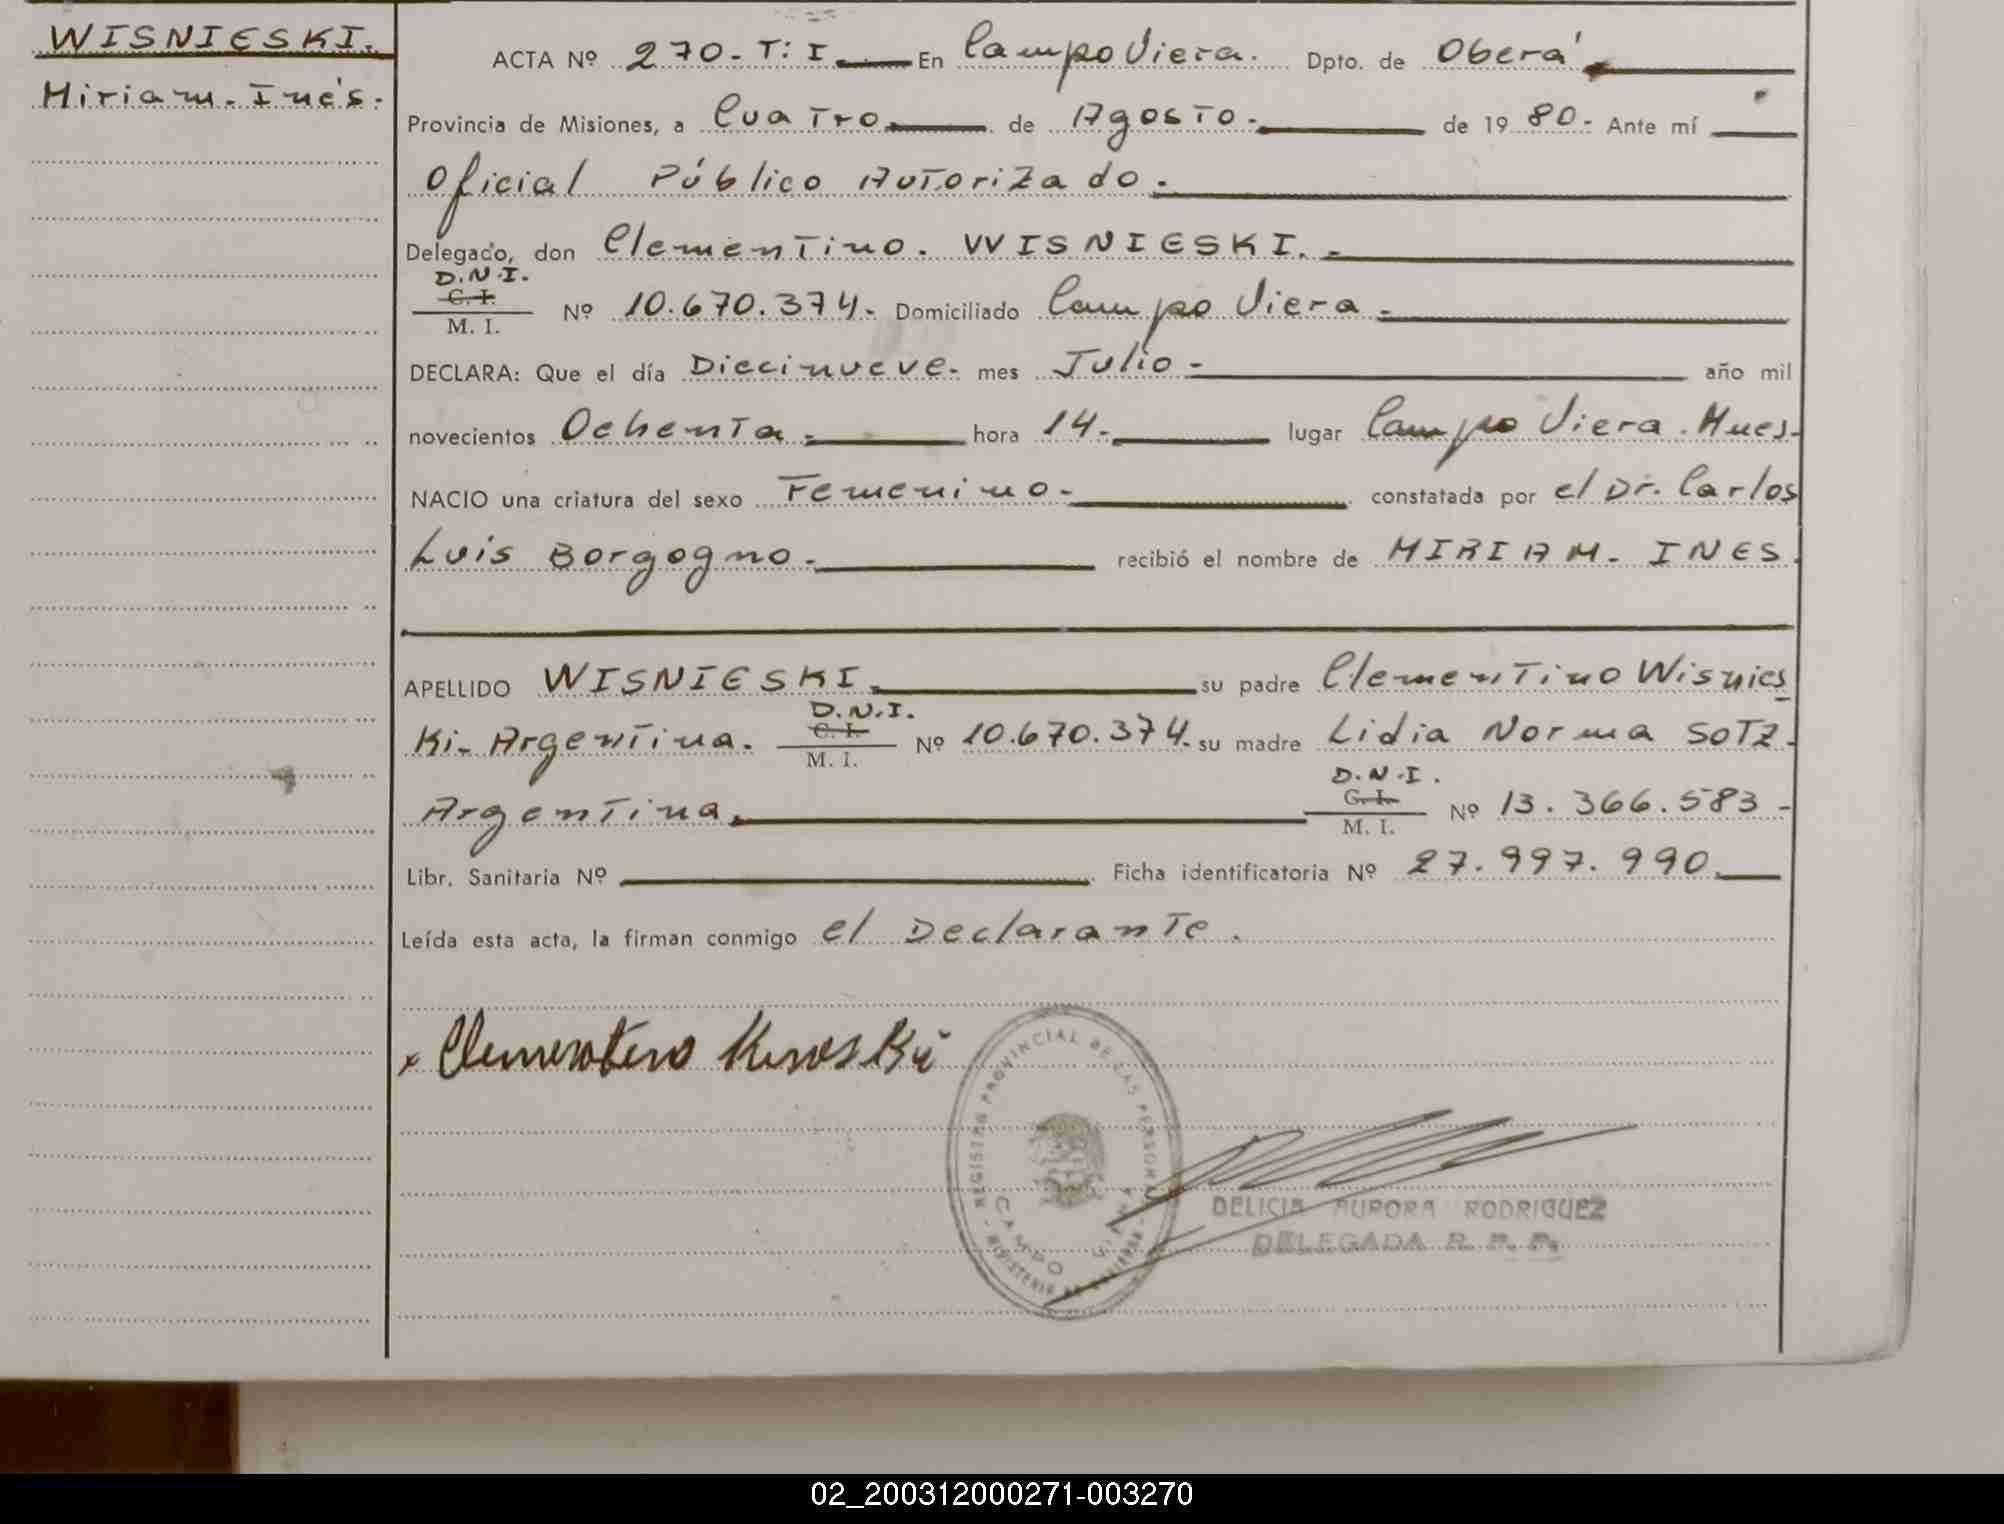 WISNIESKI.
Miriam. Inés.
ACTA Nº 270. T: I En Campo Viera. Dpto. de Oberá
Provincia de Misiones, a Cuatro de Agosto. de 1980. Ante mí
Oficial Público Autorizado.
Delegado, don Clementino. WISNIESKI.
D.N.I.
C. I.
M. I. Nº 10.670.374. Domiciliado Campo Viera
DECLARA: Que el día Diecinueve. mes Julio año mil
novecientos Ochenta. hora 14. lugar Campo Viera. Mnes.
NACIO una criatura del sexo Femenino. constatada por el Dr. Carlos
Luis Borgogno. recibió el nombre de MIRIAM. INES.
APELLIDO WISNIESKI. su padre Clementino Wisnies
D.N.I.
C. I.
Ki- Argentina. M. I. Nº 10.670.374. su madre Lidia Norma SOTZ.
D.N.I.
C. I.
Argentina. M. I. Nº 13.366.583
Libr. Sanitaria Nº Ficha identificatoria Nº 27.997.990.
Leída esta acta, la firman conmigo el Declarante.
x Clementino
REGISTRO PROVINCIAL DE LAS PERSONAS
CAMPO VIERA
MINISTERIO DE GOBIERNO
DELICIA AURORA RODRIGUEZ
DELEGADA R. P. P.
02_200312000271-003270